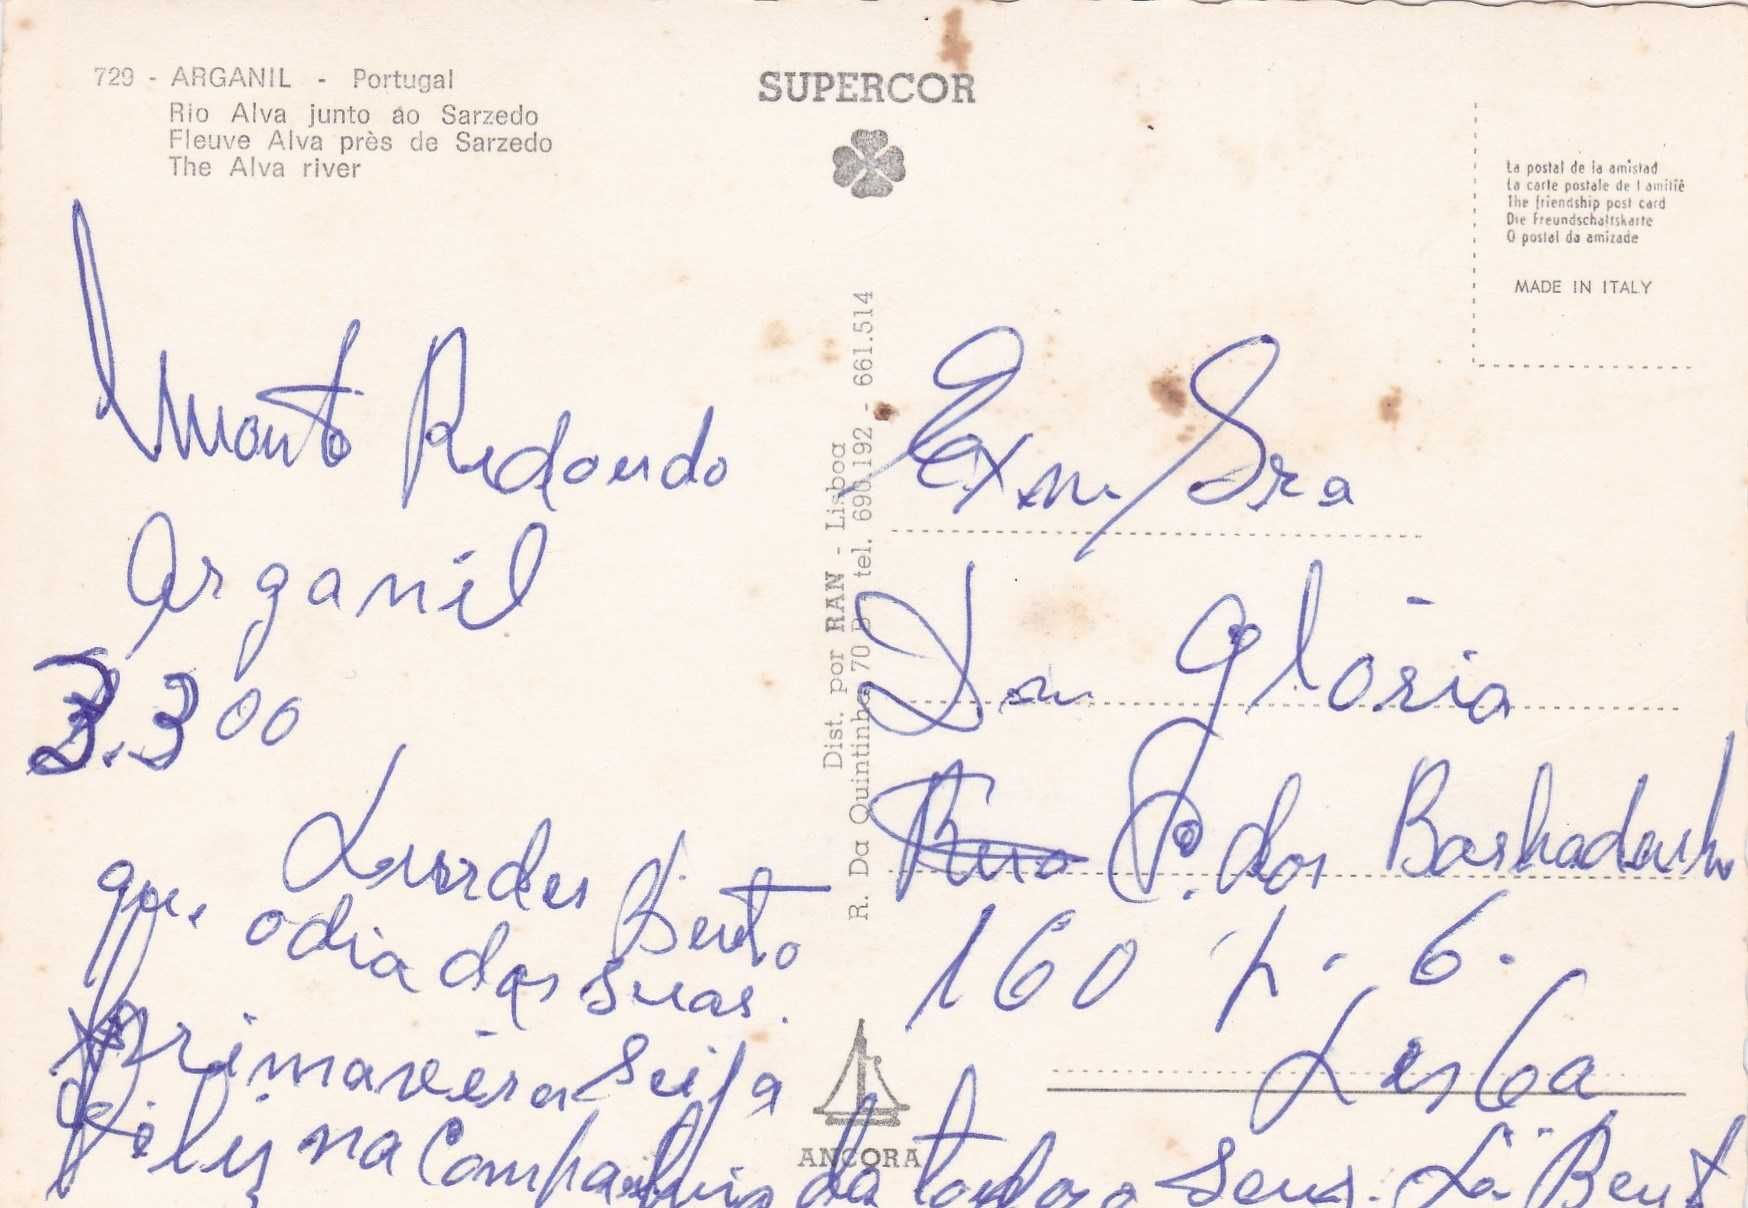 729 - ARGANIL - Portugal
Rio Alva junto ao Sarzedo
Fleuve Alva près de Sarzedo
The Alva river
SUPERCOR
La postal de la amistad
La carte postale de l amitiê
The friendship post card
Die Freundschaftskarte
O postal da amizade
MADE IN ITALY
Dist. por RAN - Lisboa
R. Da Quintinha 70 B tel. 690.192 - 661.514
Monte Redondo
Arganil
3.300
Lurdes Bento
que o dia das suas
primavera seija
feliz na Companhia da todos o seus. L. Bent
Exm/Sra
Dn Glória
Rua P. dos Barbadinho
160 6.
Lisba
ANCORA